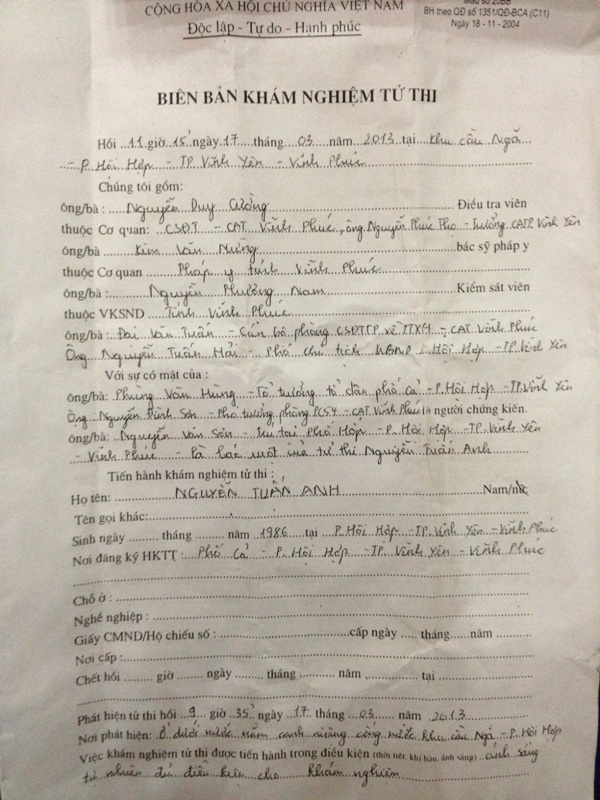 CỘNG HÒA XÃ HỘI CHỦ NGHĨA VIỆT NAM
Độc lập - Tự do - Hạnh phúc
Mẫu số
BH theo QĐ số 1351/QĐ-BCA (C11)
Ngày 18 - 11 - 2004
BIÊN BẢN KHÁM NGHIỆM TỬ THI
Hồi 11 giờ 15' ngày 17 tháng 03 năm 2013 tại khu cầu Ngã
- P. Hội Hợp - TP Vĩnh Yên - Vĩnh Phúc
Chúng tôi gồm:
ông/bà : Nguyễn Duy Cường Điều tra viên
thuộc Cơ quan: CSĐT - CAT Vĩnh Phúc, ông Nguyễn Phúc Thọ - trưởng CATP Vĩnh Yên
ông/bà Kim Văn bác sỹ pháp y
thuộc Cơ quan Pháp y tỉnh Vĩnh Phúc
ông/bà : Nguyễn Phương Nam Kiểm sát viên
thuộc VKSND Tỉnh Vĩnh Phúc
ông/bà : Đại Văn Tuấn - Cán bộ phòng CSĐTTP về TTXH - CAT Vĩnh Phúc
Ông Nguyễn Tuấn Hải - Phó chủ tịch UBND P. Hội Hợp - TP. Vĩnh Yên
Với sự có mặt của :
ông/bà: Phùng Văn Hùng - Tổ trưởng tổ dân phố cả - P. Hội Hợp - TP. Vĩnh Yên
Ông Nguyễn Đình Sơn - Phó trưởng phòng PC54 - CAT Vĩnh Phúc là người chứng kiến.
ông/bà: Nguyễn Văn Sơn - trú tại Phố Hợp - P. Hội Hợp - TP Vĩnh Yên
- Vĩnh Phúc - Là bác ruột của tử thi Nguyễn Tuấn Anh
Tiến hành khám nghiệm tử thi :
Họ tên: NGUYỄN TUẤN ANH Nam/nữ
Tên gọi khác:
Sinh ngày tháng năm 1986 tại P. Hội Hợp - TP. Vĩnh Yên - Vĩnh Phúc
Nơi đăng ký HKTT : Phố Cả - P. Hội Hợp - TP Vĩnh Yên - Vĩnh Phúc
Chỗ ở :
Nghề nghiệp :
Giấy CMND/Hộ chiếu số : cấp ngày tháng năm
Nơi cấp:
Chết hồi giờ ngày tháng năm , tại
Phát hiện tử thi hồi 9 giờ 35' ngày 17 tháng 03 năm 2013
Nơi phát hiện: Ở dưới nước nằm cạnh miệng cống nước khu cầu Ngã - P. Hội Hợp
Việc khám nghiệm tử thi được tiến hành trong điều kiện (thời tiết, khí hậu, ánh sáng) ánh sáng
tự nhiên đủ điều kiện cho khám nghiệm